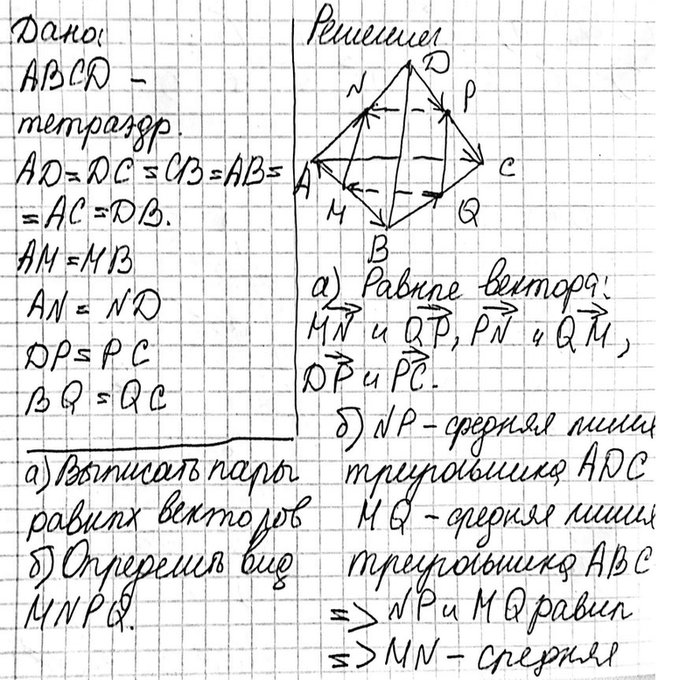 Дано:
ABCD –
тетраэдр.
AD=DC=CB=AB=
=AC=DB.
AM=MB
AN=ND
DP=PC
BQ=QC
а) Выписать пары
равных векторов
б) Определить вид
MNPQ.
Решение
D
N
P
A
C
M
Q
B
а) Равные вектора:
MN и QP, PN и QM,
DP и PC.
б) NP – средняя линия
треугольника ADC
MQ – средняя линия
треугольника ABC
=> NP и MQ равны
=> MN – средняя